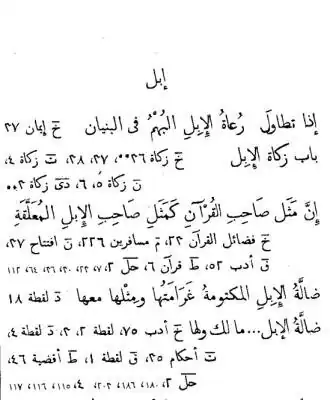 إبل
إذا تطاول رُعاةُ الإبلِ البُهْمُ فى البنيان خ إيمان ٣٧
باب زكاة الإبل خ زكاة ٣٦**، ٣٧، ٣٨، ت زكاة ٤،
ن زكاة ٥، ٦، دى زكاة ٣**
إنَّ مَثَل صاحبِ القُرْآنِ كَمَثَلِ صاحبِ الإبلِ المُعَلَّقَةِ
خ فضائل القرآن ٢٣، م مسافرين ٢٢٦، ن افتتاح ٣٧،
ق أدب ٥٢، ط قرآن ٦، حل ٢، ٧، ٢٣، ٣٠، ٣٦، ٦٤، ١١٢
ضالَّةُ الإبلِ المكتومةُ غَرَامَتُها ومِثْلها معها د لقطة ١٨
ضالة الإبل... ما لك ولها خ أدب ٧٥، لقطة ٢، ٣، د لقطة ٤،
ت أحكام ٣٥، ق لقطة ١، ط أقضية ٤٦،
حل ٢، ١٨٠، ١٨٦، ٢٠٣، ٤، ١١٥، ١١٦، ١١٧